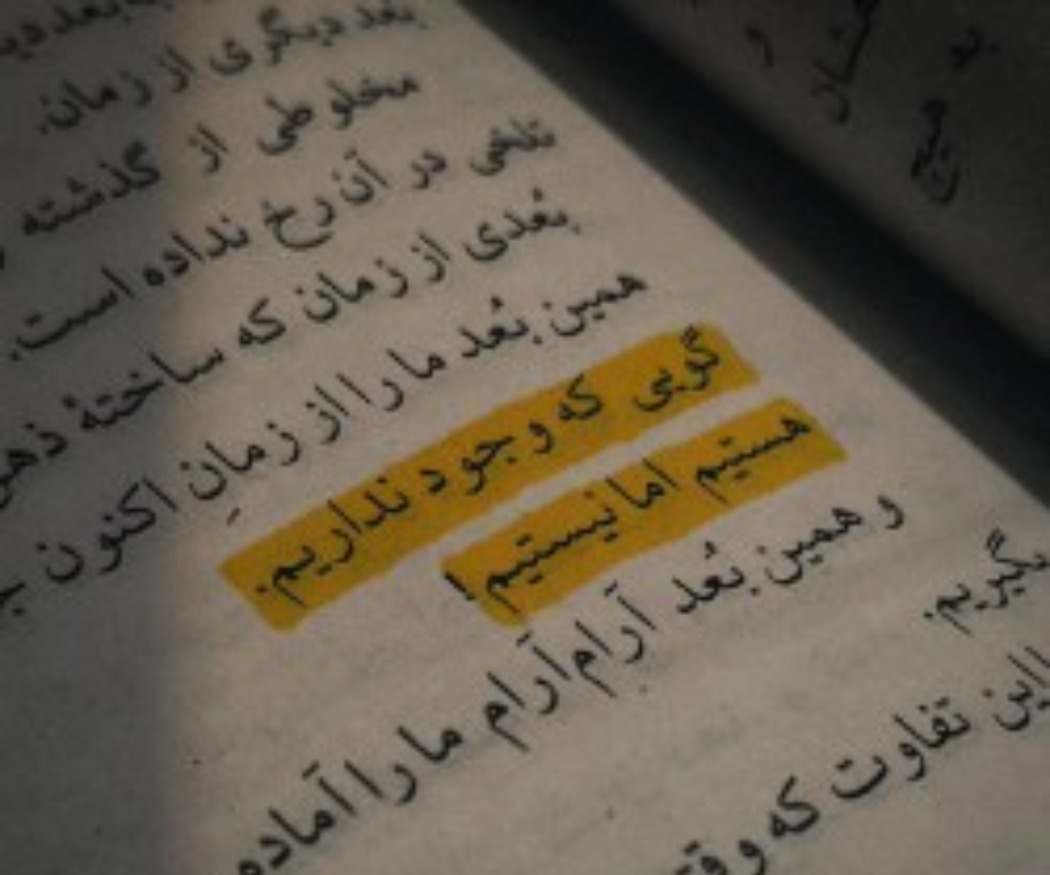 بعد دیگری از زمان.
مخلوطی از گذشته
تلخی در آن رخ نداده است.
بُعدی از زمان که ساختهٔ ذهن
همین بُعد ما را از زمانِ اکنون
گویی که وجود نداریم.
هستیم اما نیستیم!
و همین بُعد آرام‌آرام ما را آماده
بگیریم.
این تفاوت که وقتی